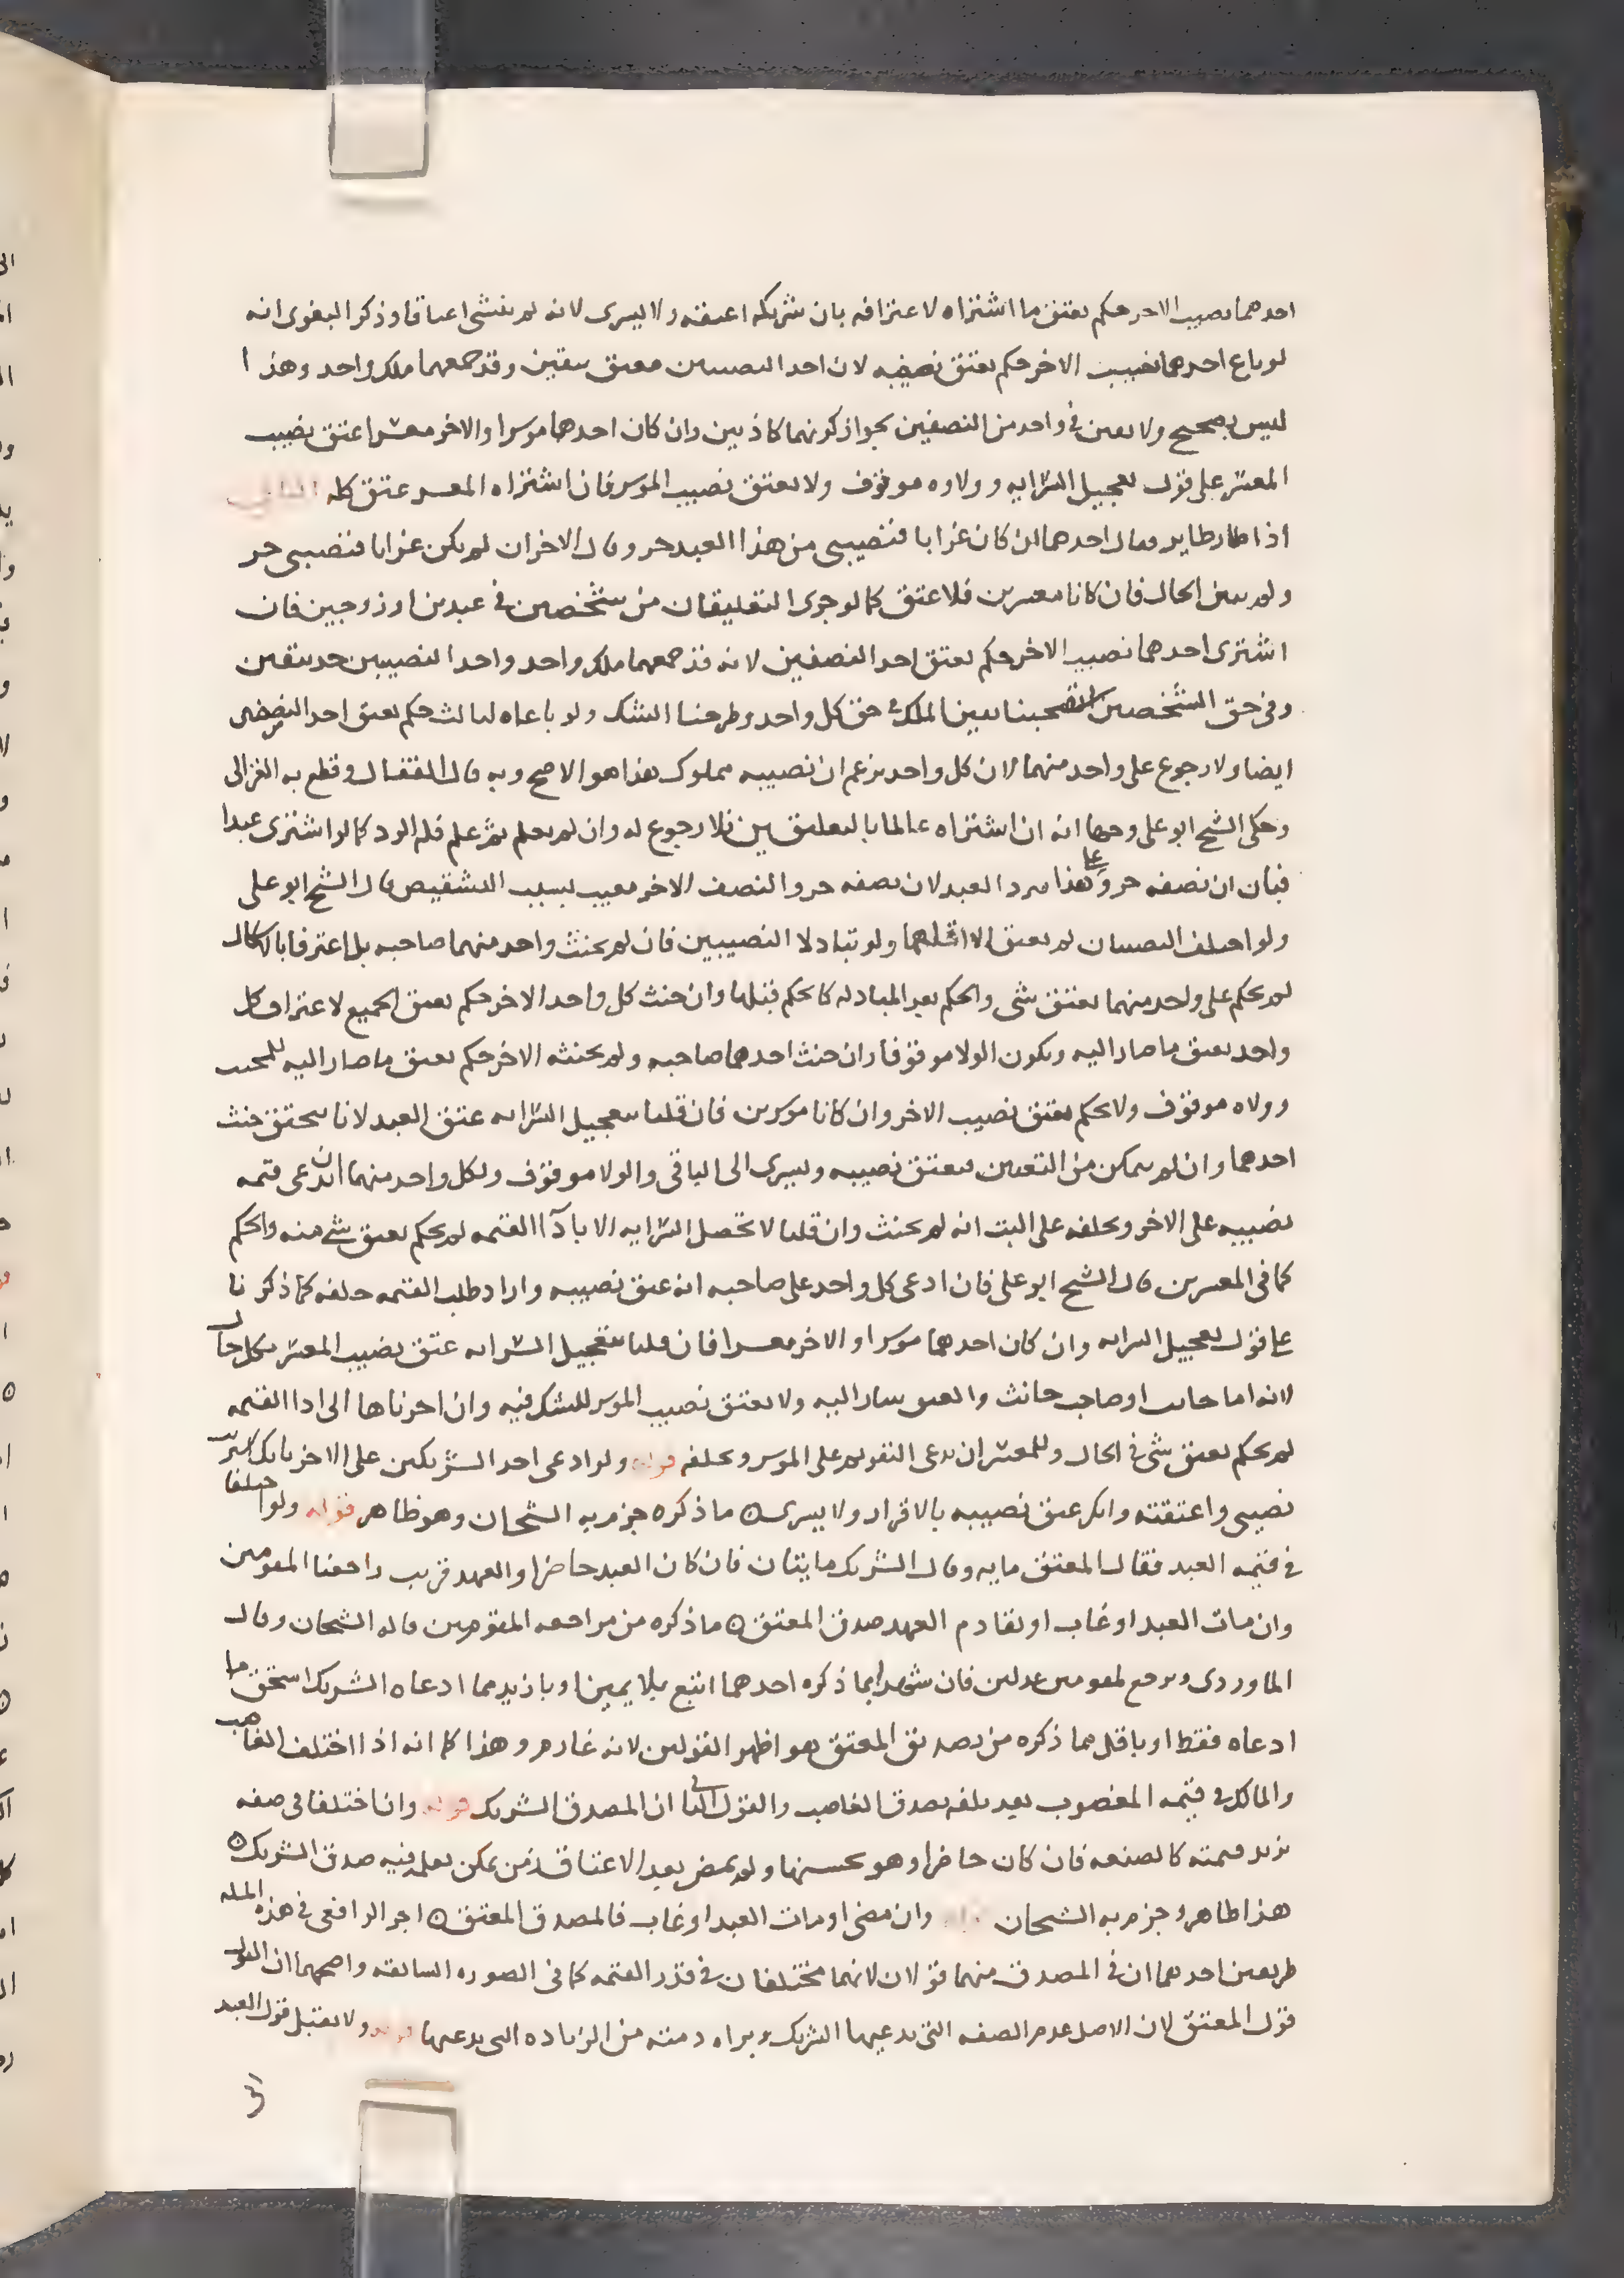 احدهما نصيب الاخر حكم بعتق ما اشتراه لاعترافه بان شريكه اعتقه ولا يسرى لانه لم ينشى اعتاقا وذكر البغوى انه
لو باع احدهما نصيب الاخر حكم بعتق نصيبه لان احد النصيبين معتق بيقين وقد جمعهما ملك واحد وهذا
ليس بصحيح ولا يعين فى واحد من النصفين لجواز كونهما كاذبين وان كان احدهما موسرا والاخر معسرا عتق نصيب
المعسر على قول تعجيل السرايه وولاوه موقوف ولا يعتق نصيب الموسر فان اشتراه المعسر عتق كله
اذا طار طاير فقال احدهما ان كان غرابا فنصيبى من هذا العبد حر وقال الاخر ان لم يكن غرابا فنصيبى حر
ولم يبين الحال فان كانا معسرين فلا عتق كما لو جرى التعليقان من شخصين فى عبدين او زوجين فان
اشترى احدهما نصيب الاخر حكم بعتق احد النصفين لانه قد جمعهما ملك واحد واحد النصيبين حر بيقين
وفى حق الشخصين استصحبنا يقين الملك فى حق كل واحد وطرحنا الشك ولو باعاه لثالث حكم بعتق احد النصفين
ايضا ولا رجوع على واحد منهما لان كل واحد يزعم ان نصيبه مملوك هذا هو الاصح وبه قال القفال وقطع به الغزالى
وحكى الشيخ ابو على وجها انه ان اشتراه عالما بالتعليقين فلا رجوع له وان لم يعلم ثم علم فله الرد كما لو اشترى عبدا
فبان ان نصفه حر وعلى هذا يرد العبد لان نصفه حر والنصف الاخر معيب بسبب التشقيص قال الشيخ ابو على
ولو اختلف النصيبان لم يعتق الا اقلهما ولو تبادلا النصيبين فان لم يحنث واحد منهما صاحبه بل اعترفا بالاشكال
لم يحكم على واحد منهما بعتق شى والحكم بعد المبادله كالحكم قبلها وان حنث كل واحد الاخر حكم بعتق الجميع لاعتراف كل
واحد بعتق ما صار اليه ويكون الولا موقوفا وان حنث احدهما صاحبه ولم يحنثه الاخر حكم بعتق ما صار اليه للمحنث
وولاه موقوف ولا يحكم بعتق نصيب الاخر وان كانا موسرين فان قلنا بتعجيل السرايه عتق العبد لانا نتحقق حنث
احدهما وان لم يتمكن من التعيين فيعتق نصيبه ويسرى الى الباقى والولا موقوف ولكل واحد منهما ان يدعى قيمه
نصيبه على الاخر ويحلفه على البت انه لم يحنث وان قلنا لا تحصل السرايه الا بادآ القيمه لم يحكم بعتق شى منه والحكم
كما فى المعسرين قال الشيخ ابو على فان ادعى كل واحد على صاحبه انه عتق نصيبه واراد طلب القيمه حلفه كما ذكرنا
على قول تعجيل السرايه وان كان احدهما موسرا والاخر معسرا فان قلنا بتعجيل السرايه عتق نصيب المعسر بكل حال
لانه اما حانث او صاحبه حانث والعتق سار اليه ولا يعتق نصيب الموسر للشك فيه وان اخرناها الى ادا القيمه
لم يحكم بعتق شى فى الحال وللمعسر ان يدعى التقويم على الموسر ويحلفه قوله ولو ادعى احد الشريكين على الاخر بانك اشتريت
نصيبى واعتقته وانكر عتق نصيبه بالاقرار ولا يسرى ه ما ذكره جزم به الشيخان وهو ظاهر قوله ولو اختلفا
فى قيمه العبد فقال المعتق مايه وقال الشريك مايتان فان كان العبد حاضرا والعهد قريب راجعنا المقومين
وان مات العبد او غاب او تقادم العهد صدق المعتق ه ما ذكره من مراجعه المقومين قاله الشيخان وقال
الماوردى ويرجع لمقومين عدلين فان شهدا بما ذكره احدهما اتبع بلا يمين او بازيد مما ادعاه الشريك استحق ما
ادعاه فقط او باقل مما ذكره من تصديق المعتق هو اظهر القولين لانه غارم وهذا كما انه اذا اختلف الغاصب
والمالك فى قيمه المغصوب بعد تلفه يصدق الغاصب والقول الثانى ان المصدق الشريك قوله وان اختلفا فى صفه
تزيد قيمته كالصنعه فان كان حاضرا وهو يحسنها ولم يمض بعد الاعتاق زمن يمكن تعلمه فيه صدق الشريك ه
هذا ظاهر وجزم به الشيخان قوله وان مضى او مات العبد او غاب فالمصدق المعتق ه اجر الرافعى فى هذه المسله
طريقين احدهما ان فى المصدق منهما قولان لانهما مختلفان فى قدر القيمه كما فى الصوره السابقه واصحهما ان القول
قول المعتق لان الاصل عدم الصفه التى يدعيها الشريك وبراه ذمته من الزياده التى يدعيها قوله ولا يقبل قول العبد